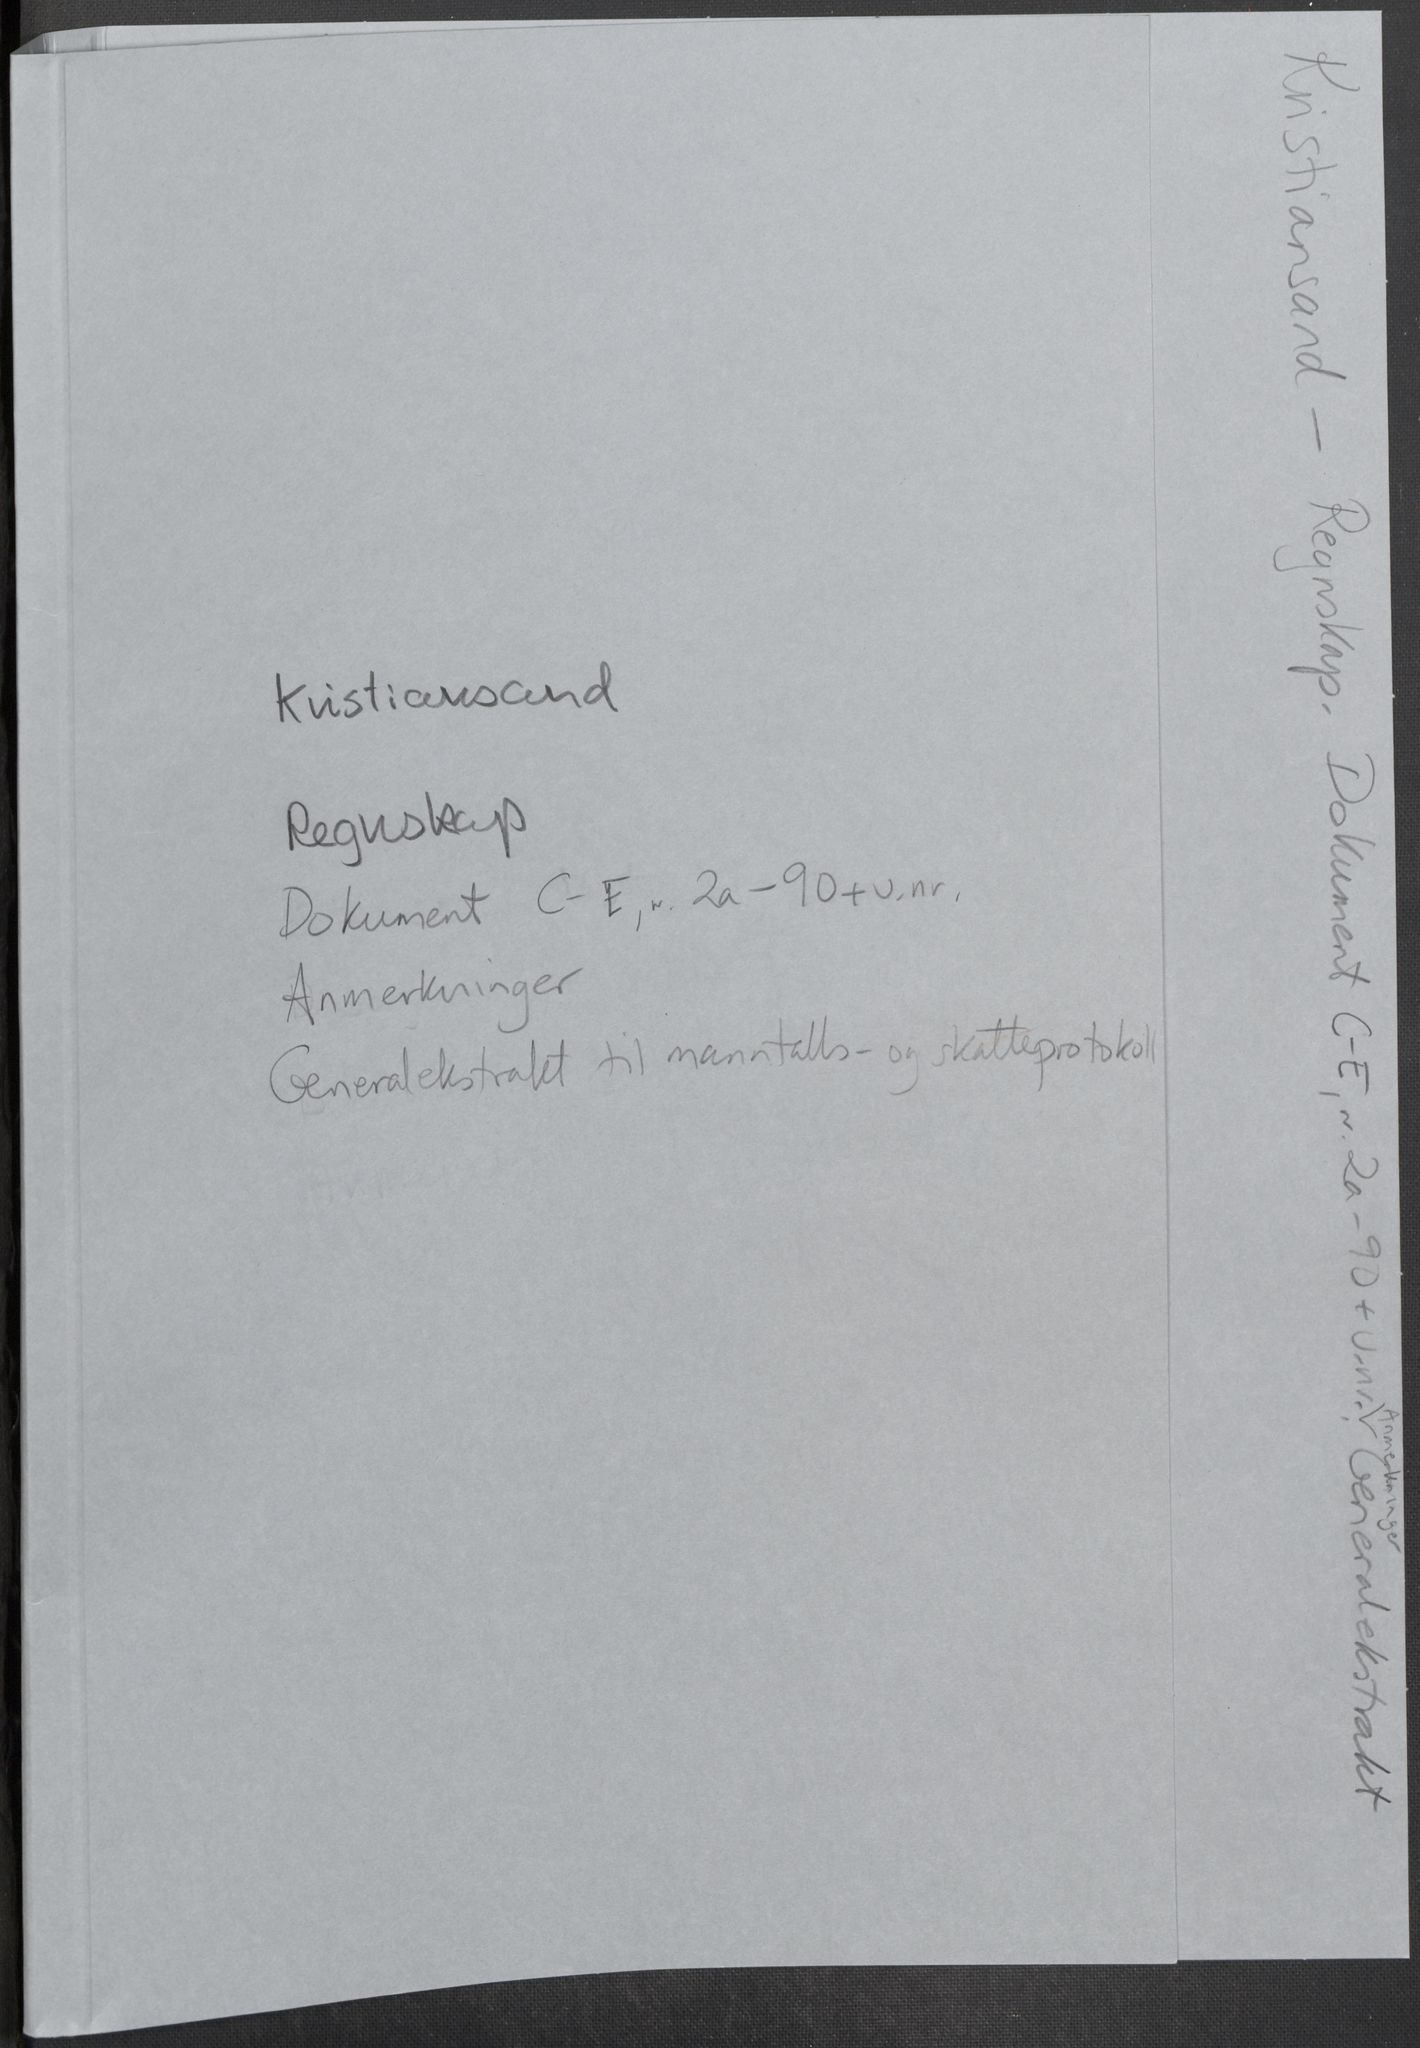 Kristiansand
Regnskap
Dokument C-E, n. 2a-90+u.nr.
Anmerkninger
Generalekstrakt til manntalls- og skatteprotokoll
Kristiansand – Regnskap. Dokument C-E, n. 2a-90+u.nr., Anmerkninger Generalekstrakt